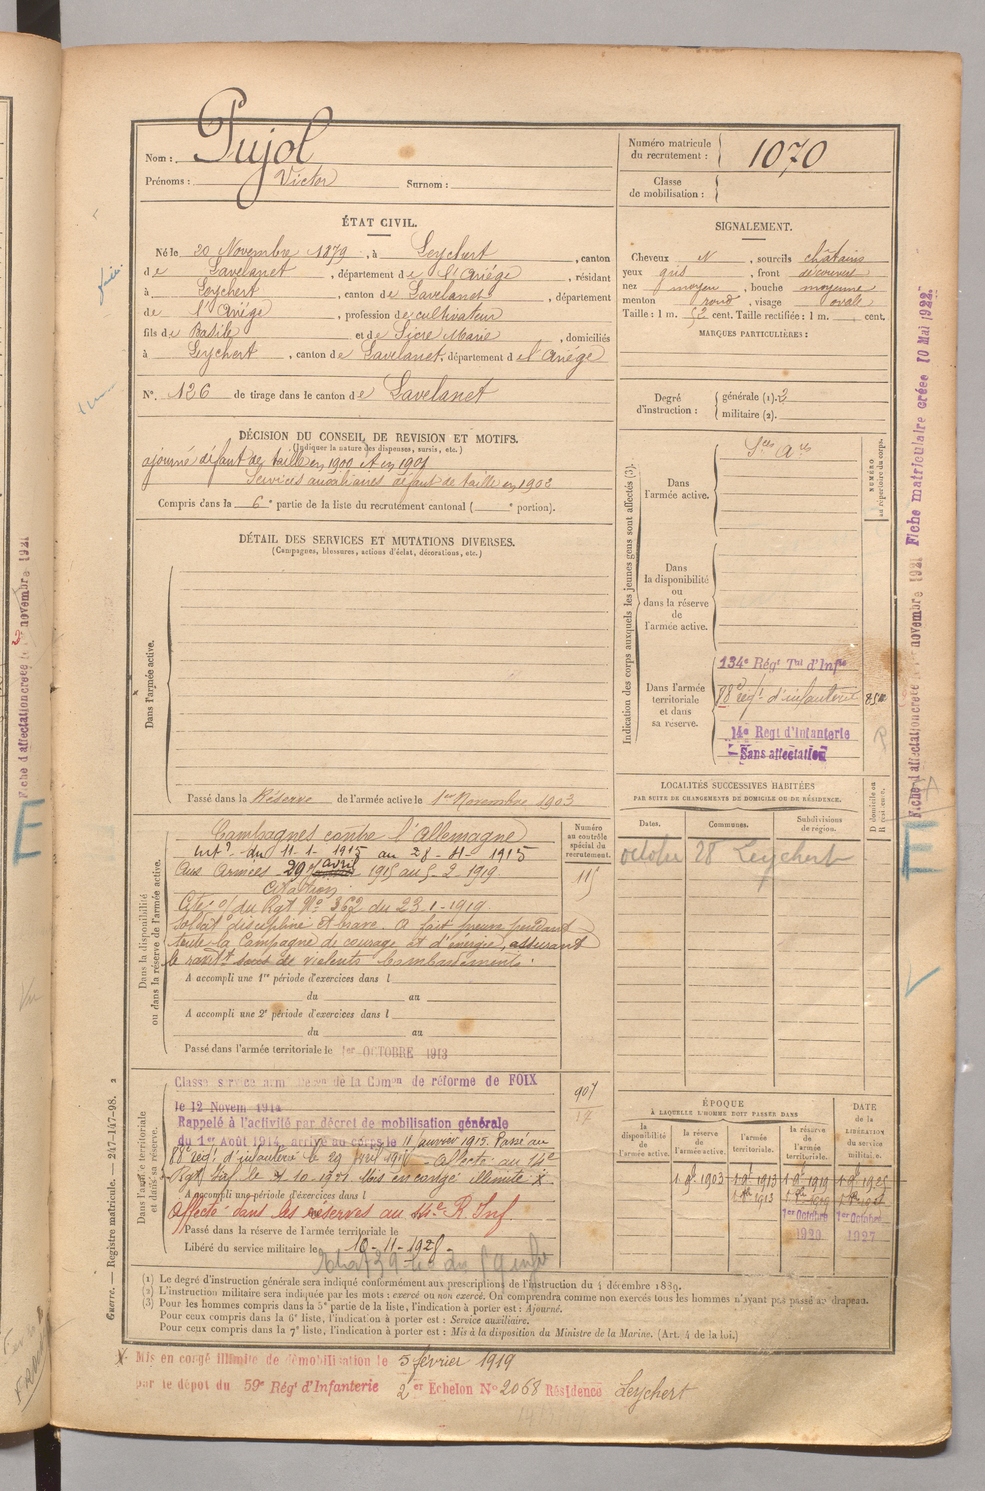 Nom : Pujol
Prénoms : Victor Surnom :
Numéro matricule du recrutement : 1070
Classe de mobilisation :
ÉTAT CIVIL.
Né le 20 Novembre 1879, à Leychert, canton
de Lavelanet, département de l'Ariége, résidant
à Leychert, canton de Lavelanet, département
de l'Ariége, profession de cultivateur
fils de Basile et de Sicre Marie, domiciliés
à Leychert, canton de Lavelanet, département de l'Ariege
N°. 126 de tirage dans le canton de Lavelanet
SIGNALEMENT.
Cheveux N, sourcils châtains
yeux gris, front découvert
nez moyen, bouche moyenne
menton rond, visage ovale
Taille : 1 m. 52 cent. Taille rectifiée : 1 m. cent.
MARQUES PARTICULIÈRES :
Degré d'instruction : générale (1). 3
militaire (2).
DÉCISION DU CONSEIL DE REVISION ET MOTIFS.
(Indiquer la nature des dispenses, sursis, etc.)
ajourné défaut de taille en 1900 et en 1901
Services auxiliaires défaut de taille en 1902
Compris dans la 6e partie de la liste du recrutement cantonal ( e portion).
DÉTAIL DES SERVICES ET MUTATIONS DIVERSES.
(Campagnes, blessures, actions d'éclat, décorations, etc.)
Dans l'armée active.
Passé dans la Réserve de l'armée active le 1er Novembre 1903
Indication des corps auxquels les jeunes gens sont affectés (3).
NUMÉRO au répertoire du corps.
Dans l'armée active.
Dans la disponibilité ou dans la réserve de l'armée active.
Dans l'armée territoriale et dans sa réserve.
134e Régt Tal d'Infie
88e régt d'infanterie
14e Regt d'Infanterie
Sans affectation
Dans la disponibilité ou dans la réserve de l'armée active.
Numéro au contrôle spécial du recrutement.
115
Campagnes contre l'Allemagne
Intr du 11-1-1915 au 28-4-1915
Aux Armées 29 avril 1915 au 5-2-1919
Citation
Cité o/ du Rgt No 362 du 23-1-1919
Soldat discipliné et brave. A fait preuve pendant
toute la Campagne de courage et d'énergie, assurant
le ravitt sous de violents bombardements.
A accompli une 1re période d'exercices dans l
du au
A accompli une 2e période d'exercices dans l
du au
Passé dans l'armée territoriale le 1er OCTOBRE 1913
LOCALITÉS SUCCESSIVES HABITÉES
PAR SUITE DE CHANGEMENTS DE DOMICILE OU DE RÉSIDENCE.
Dates. Communes. Subdivisions de région. D domicile ou R résidence.
octobre 28 Leychert
Dans l'armée territoriale et dans sa réserve.
Classé service armé de la Comon de réforme de FOIX
le 12 Novem 1914
Rappelé à l'activité par décret de mobilisation générale
du 1er Août 1914, arrivé au corps le 11 janvier 1915. Passé au
88e régt d'infanterie le 29 avril 1915 - Affecté au 14e
Mis en congé illimité X
A accompli une période d'exercices dans l
Affecté dans les réserves au 14e R Inf
Passé dans la réserve de l'armée territoriale le
Libéré du service militaire le 10-11-1928
907
ÉPOQUE
À LAQUELLE L'HOMME DOIT PASSER DANS
la disponibilité de l'armée active. la réserve de l'armée active. l'armée territoriale. la réserve de l'armée territoriale.
DATE de la LIBÉRATION du service militaire.
1 9bre 1903
1er Octobre 1920
1er Octobre 1927
(1) Le degré d'instruction générale sera indiqué conformément aux prescriptions de l'instruction du 4 décembre 1889.
(2) L'instruction militaire sera indiquée par les mots : exercé ou non exercé. On comprendra comme non exercés tous les hommes n'ayant pas passé au drapeau.
(3) Pour les hommes compris dans la 5e partie de la liste, l'indication à porter est : Ajourné.
Pour ceux compris dans la 6e liste, l'indication à porter est : Service auxiliaire.
Pour ceux compris dans la 7e liste, l'indication à porter est : Mis à la disposition du Ministre de la Marine. (Art. 4 de la loi.)
X Mis en congé illimité de démobilisation le 5 février 1919
par le dépôt du 59e Régt d'Infanterie 2er Echelon No 2068 Résidence Leychert
Guerre. — Registre matricule. — 247-147-98. 2
Fiche d'affectation créée le novembre 1921 Fiche matriculaire créée 10 Mai 1922.
E
Fiche d'affectation créée le 2 novembre 1921
E